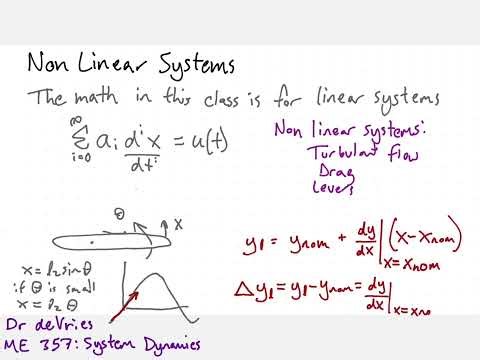 Non Linear Systems
The math in this class is for linear systems
∞
Σ aᵢ dⁱx/dtⁱ = u(t)
i=0
Non linear systems:
Turbulant flow
Drag
Levers
θ
x
x = l₂ sin θ
if θ is small
x = l₂ θ
yₗ = yₙₒₘ + dy/dx |ₓ₌ₓₙₒₘ (x - xₙₒₘ)
Δyₗ = yₗ - yₙₒₘ = dy/dx |ₓ₌ₓₙₒ
Dr deVries
ME 357: System Dynamics